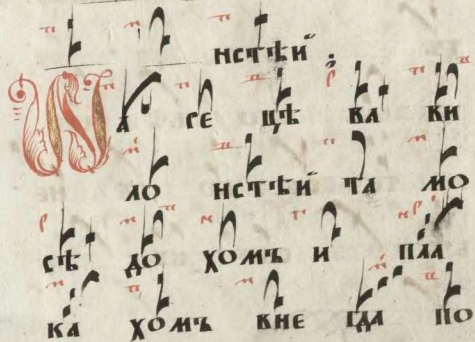 нстѣи :
На ре цѣ ва ви
ло нстѣи та мо
сѣ до хомъ и пла
ка хомъ вне гда по